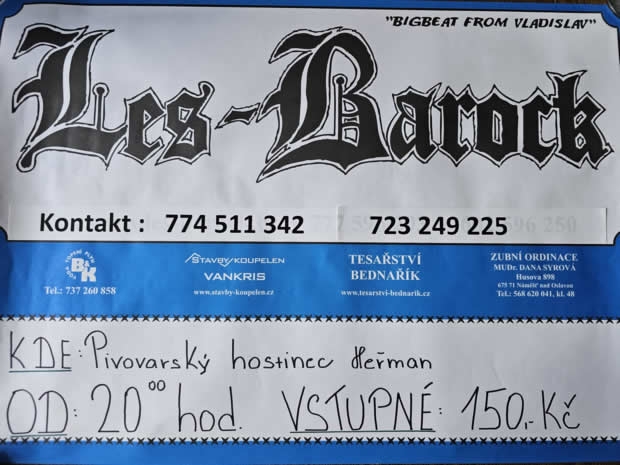 "BIGBEAT FROM VLADISLAV"
Les-Barock
Kontakt : 774 511 342 723 249 225
VODA TOPENÍ PLYN
B&K
Tel.: 737 260 858
STAVBY KOUPELEN
VANKRIS
www.stavby-koupelen.cz
TESAŘSTVÍ
BEDNAŘÍK
www.tesarstvi-bednarik.cz
ZUBNÍ ORDINACE
MUDr. DANA SYROVÁ
Husova 898
675 71 Náměšť nad Oslavou
Tel.: 568 620 041, kl. 48
KDE: Pivovarský hostinec Heřman
OD: 20⁰⁰ hod. VSTUPNÉ: 150,-Kč